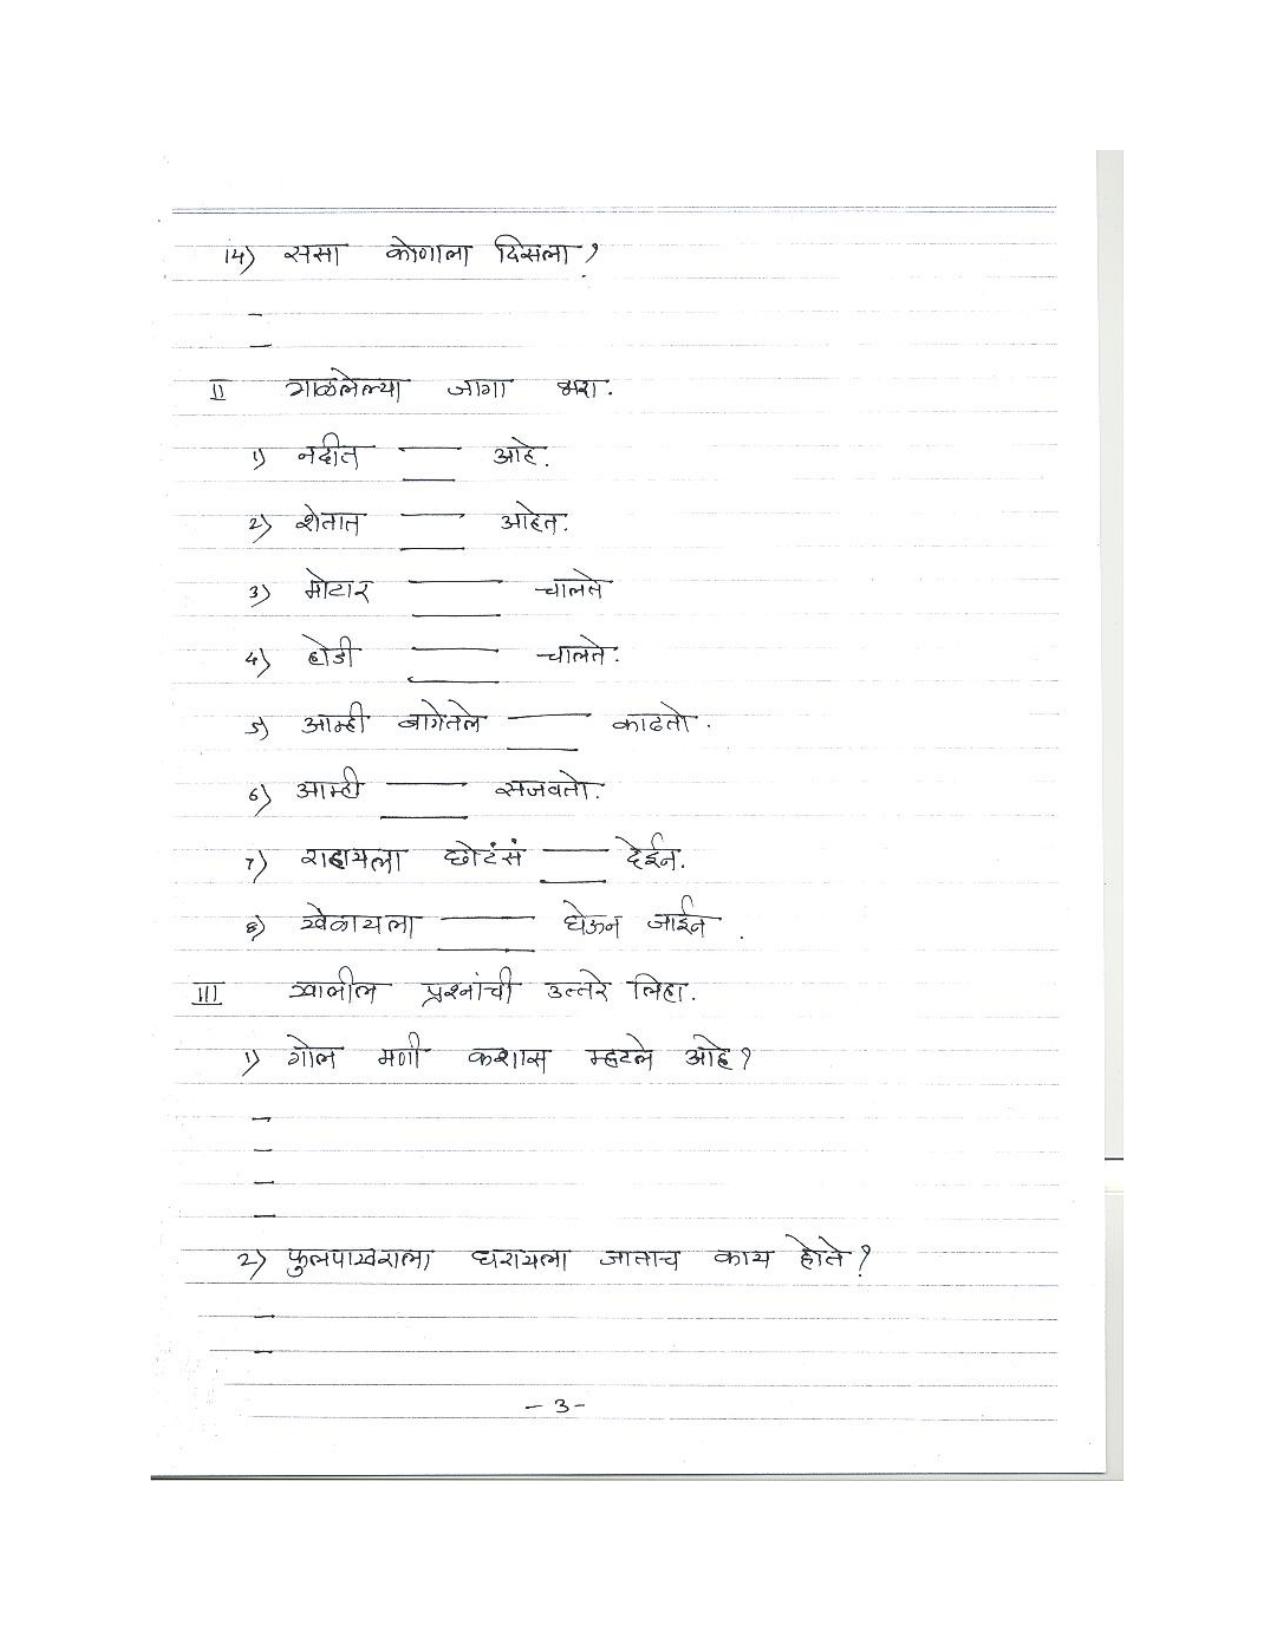 14) ससा कोणाला दिसला?
II गाळलेल्या जागा भरा.
1) नदीत ___ आहे.
2) शेतात ___ आहेत.
3) मोटार ___ चालते
4) होडी ___ चालते.
5) आम्ही बागेतले ___ काढतो.
6) आम्ही ___ सजवतो.
7) राहायला छोटंसं ___ देईन.
8) खेळायला ___ घेऊन जाईन.
III खालील प्रश्नांची उत्तरे लिहा.
1) गोल मणी कशास म्हटले आहे?
2) फुलपाखराला धरायला जाताच काय होते?
- 3 -